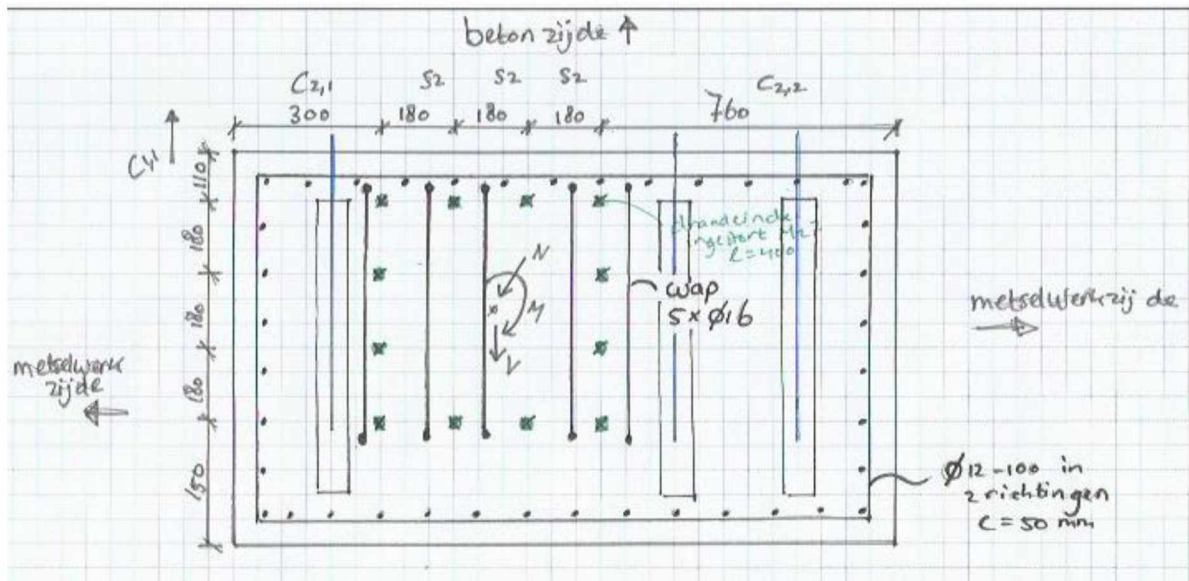 beton zijde ↑
C2,1 S2 S2 S2 C2,2
300 180 180 180 760
C1,1
110
180
180
180
150
N
M
V
l=400
wap
5xø16
metselwerkzijde
metselwerk
zijde
ø12-100 in
2 richtingen
c=50 mm